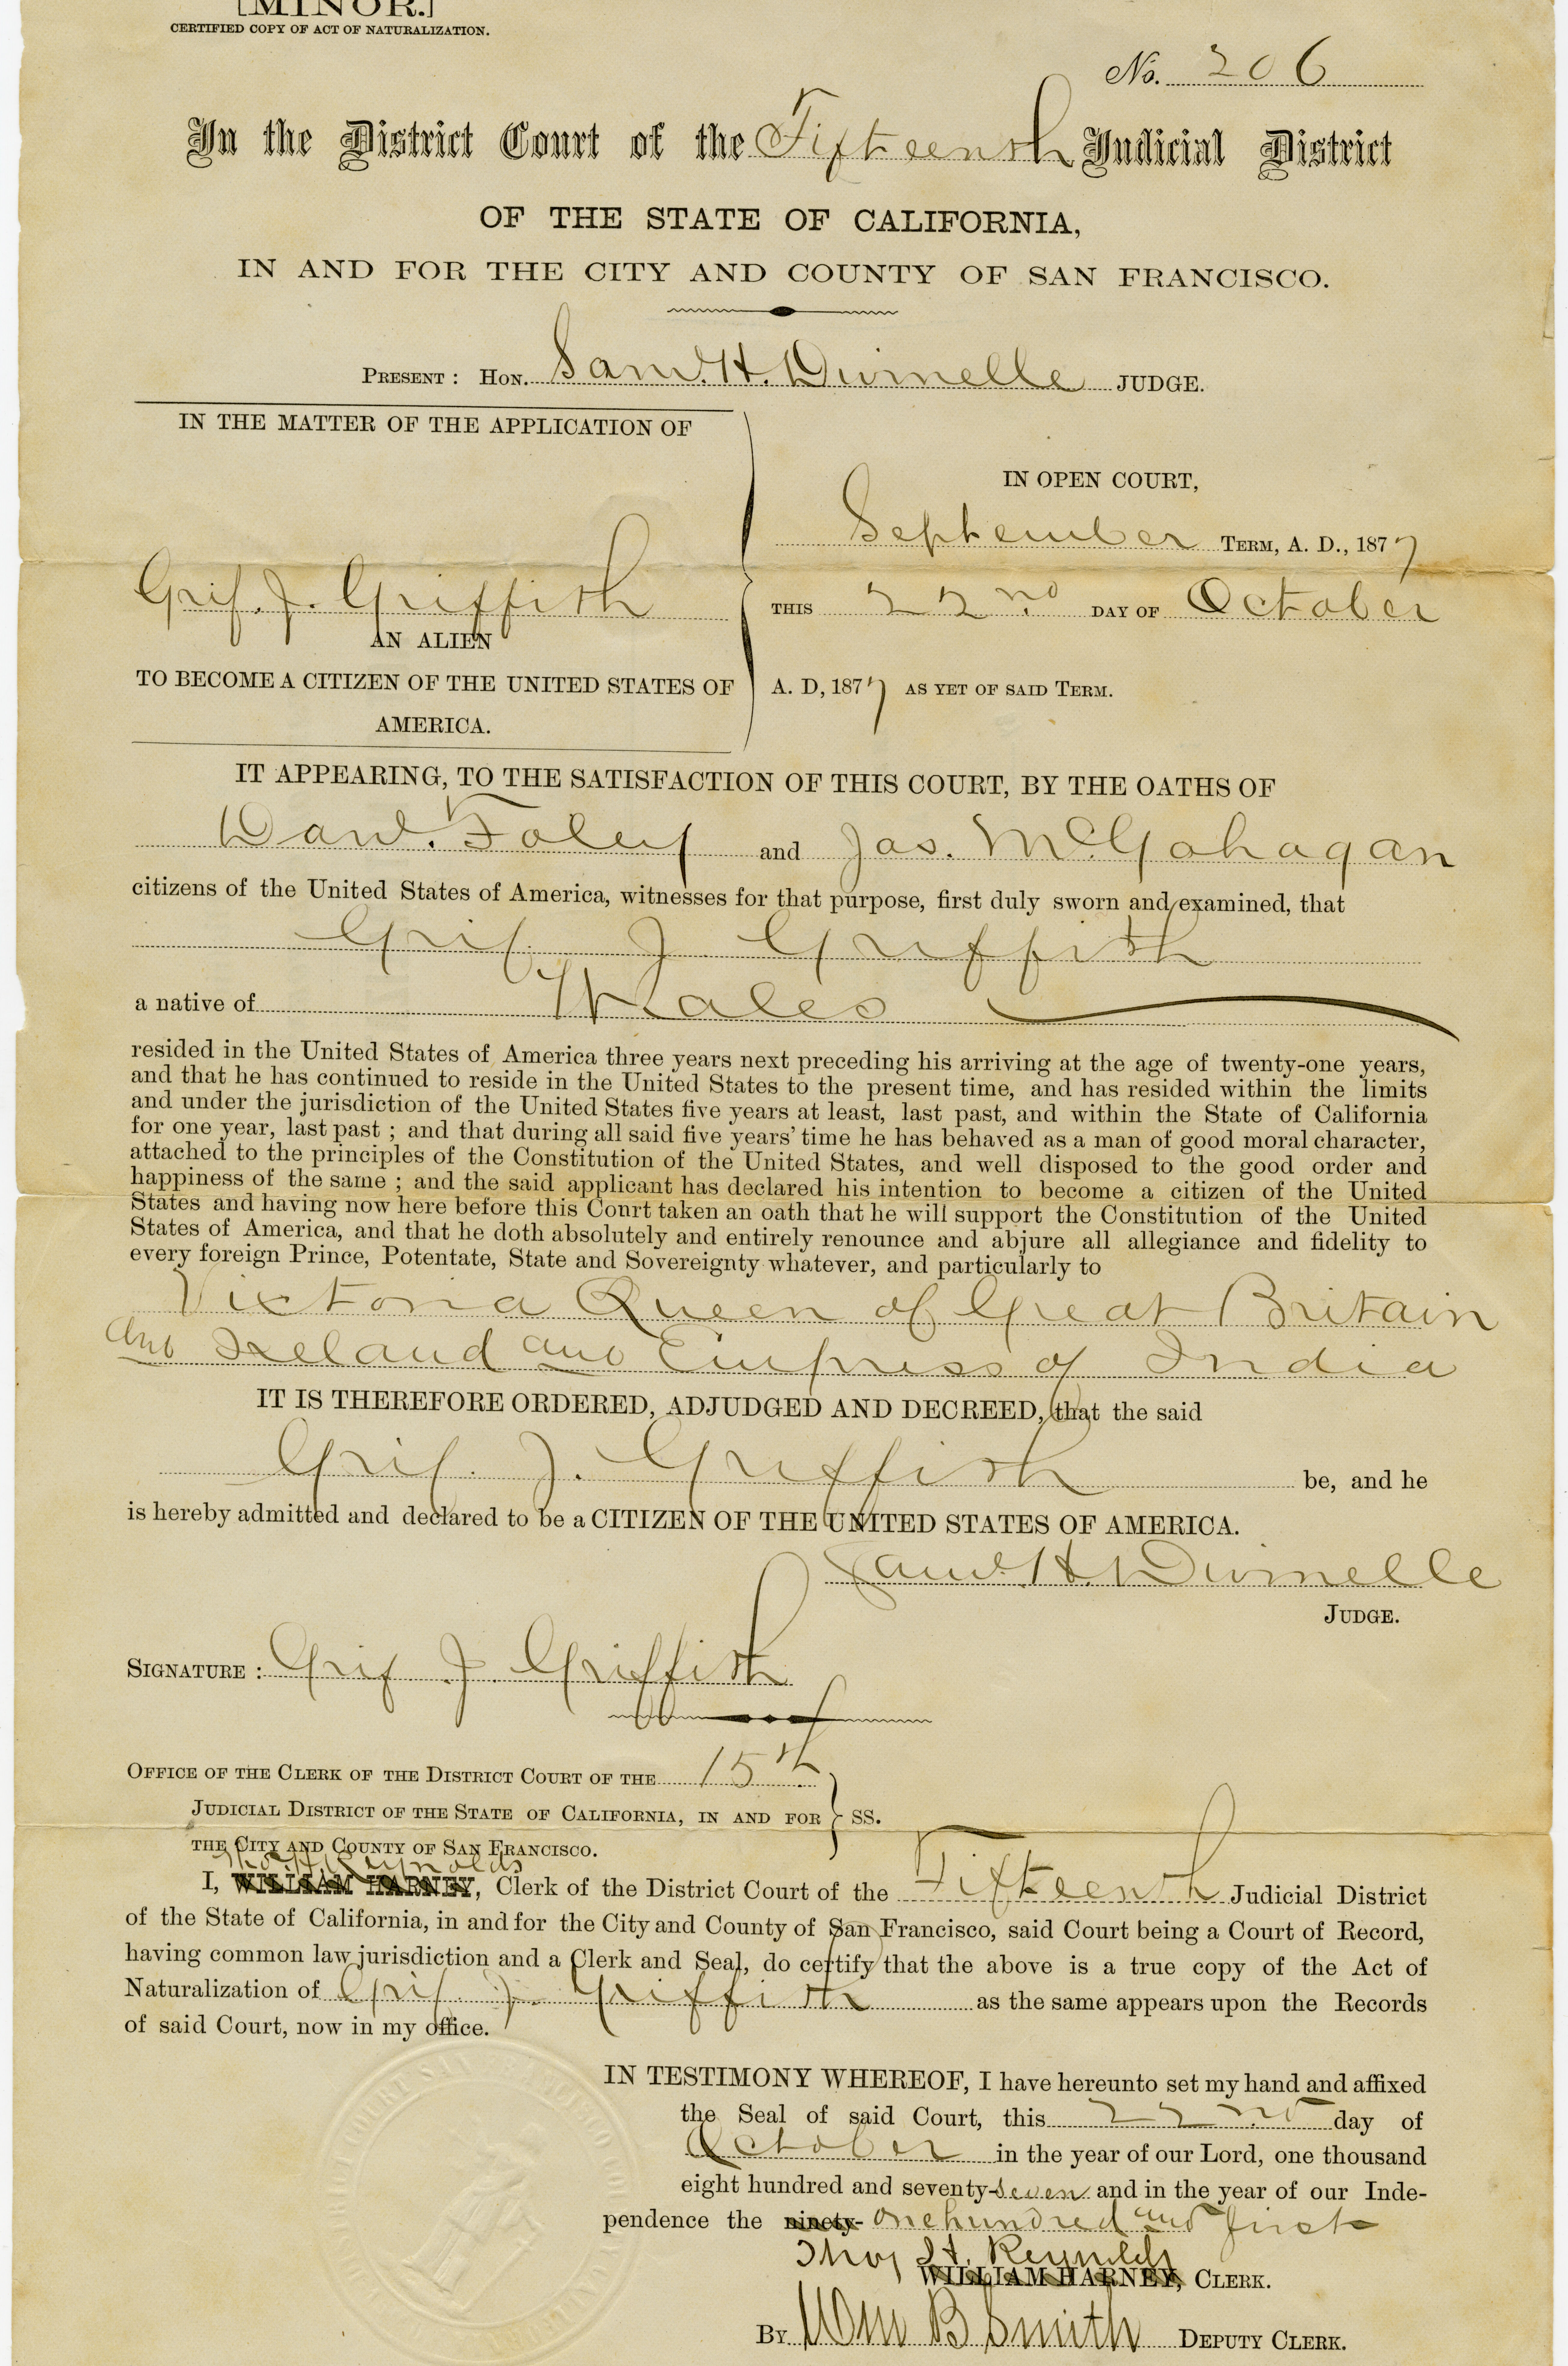 [MINOR.]
CERTIFIED COPY OF ACT OF NATURALIZATION.
No. 206
In the District Court of the Fifteenth Judicial District
OF THE STATE OF CALIFORNIA,
IN AND FOR THE CITY AND COUNTY OF SAN FRANCISCO.
PRESENT : HON. Saml. H. Dwinelle JUDGE.
IN THE MATTER OF THE APPLICATION OF
Grif. J. Griffith
AN ALIEN
TO BECOME A CITIZEN OF THE UNITED STATES OF
AMERICA.
IN OPEN COURT,
September TERM, A. D., 1877
THIS 22nd DAY OF October
A. D, 1877 AS YET OF SAID TERM.
IT APPEARING, TO THE SATISFACTION OF THIS COURT, BY THE OATHS OF
Danl. Foley and Jas. McGohagan
citizens of the United States of America, witnesses for that purpose, first duly sworn and examined, that
Grif. J. Griffith
a native of Wales
resided in the United States of America three years next preceding his arriving at the age of twenty-one years,
and that he has continued to reside in the United States to the present time, and has resided within the limits
and under the jurisdiction of the United States five years at least, last past, and within the State of California
for one year, last past ; and that during all said five years' time he has behaved as a man of good moral character,
attached to the principles of the Constitution of the United States, and well disposed to the good order and
happiness of the same ; and the said applicant has declared his intention to become a citizen of the United
States and having now here before this Court taken an oath that he will support the Constitution of the United
States of America, and that he doth absolutely and entirely renounce and abjure all allegiance and fidelity to
every foreign Prince, Potentate, State and Sovereignty whatever, and particularly to
Victoria Queen of Great Britain
and Ireland and Empress of India
IT IS THEREFORE ORDERED, ADJUDGED AND DECREED, that the said
Grif. J. Griffith be, and he
is hereby admitted and declared to be a CITIZEN OF THE UNITED STATES OF AMERICA.
Saml. H. Dwinelle
JUDGE.
SIGNATURE : Grif J. Griffith
OFFICE OF THE CLERK OF THE DISTRICT COURT OF THE 15th
JUDICIAL DISTRICT OF THE STATE OF CALIFORNIA, IN AND FOR } SS.
THE CITY AND COUNTY OF SAN FRANCISCO.
Thos H Reynolds
I, WILLIAM HARNEY, Clerk of the District Court of the Fifteenth Judicial District
of the State of California, in and for the City and County of San Francisco, said Court being a Court of Record,
having common law jurisdiction and a Clerk and Seal, do certify that the above is a true copy of the Act of
Naturalization of Grif. J. Griffith as the same appears upon the Records
of said Court, now in my office.
IN TESTIMONY WHEREOF, I have hereunto set my hand and affixed
the Seal of said Court, this 22nd day of
October in the year of our Lord, one thousand
eight hundred and seventy-seven and in the year of our Inde-
pendence the ninety- one hundred and first
Thos H. Reynolds
WILLIAM HARNEY, CLERK.
BY Wm B Smith DEPUTY CLERK.